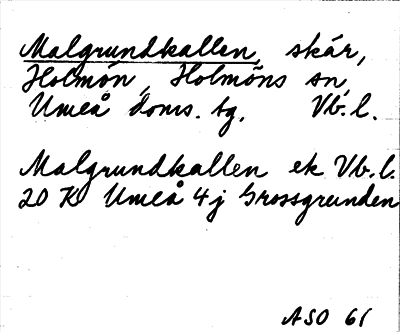 Malgrundkallen, skär,
Holmön, Holmöns sn,
Umeå doms. tg. Vb. l.
Malgrundkallen ek Vb. l.
20 K Umeå 4j Grossgrunden
ASO 61